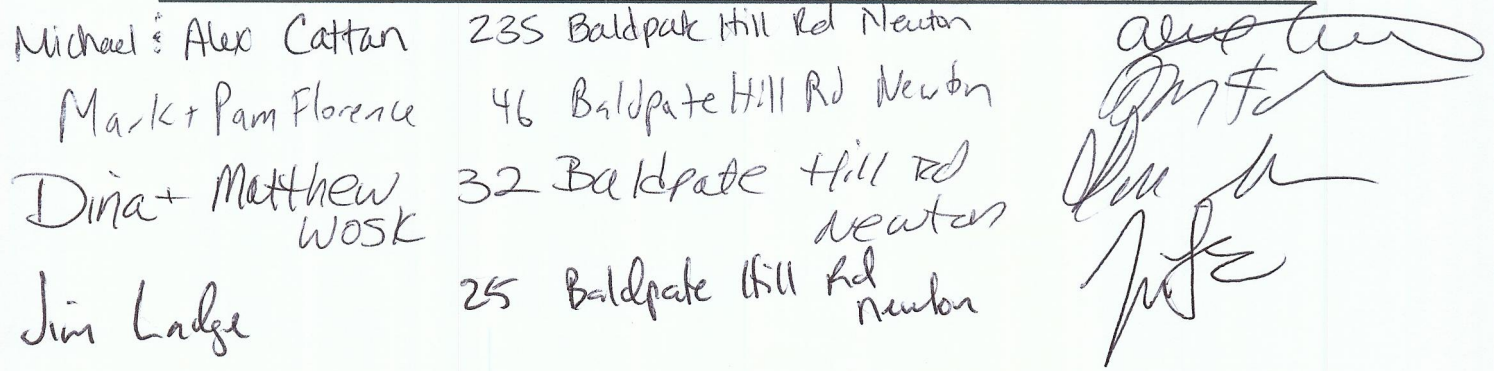 Michael & Alex Cattan 235 Baldpate Hill Rd Newton
Mark + Pam Florence 46 Baldpate Hill Rd Newton
Dina + Matthew 32 Baldpate Hill Rd
Wosk Newton
Jim Ladge 25 Baldpate Hill Rd
Newton